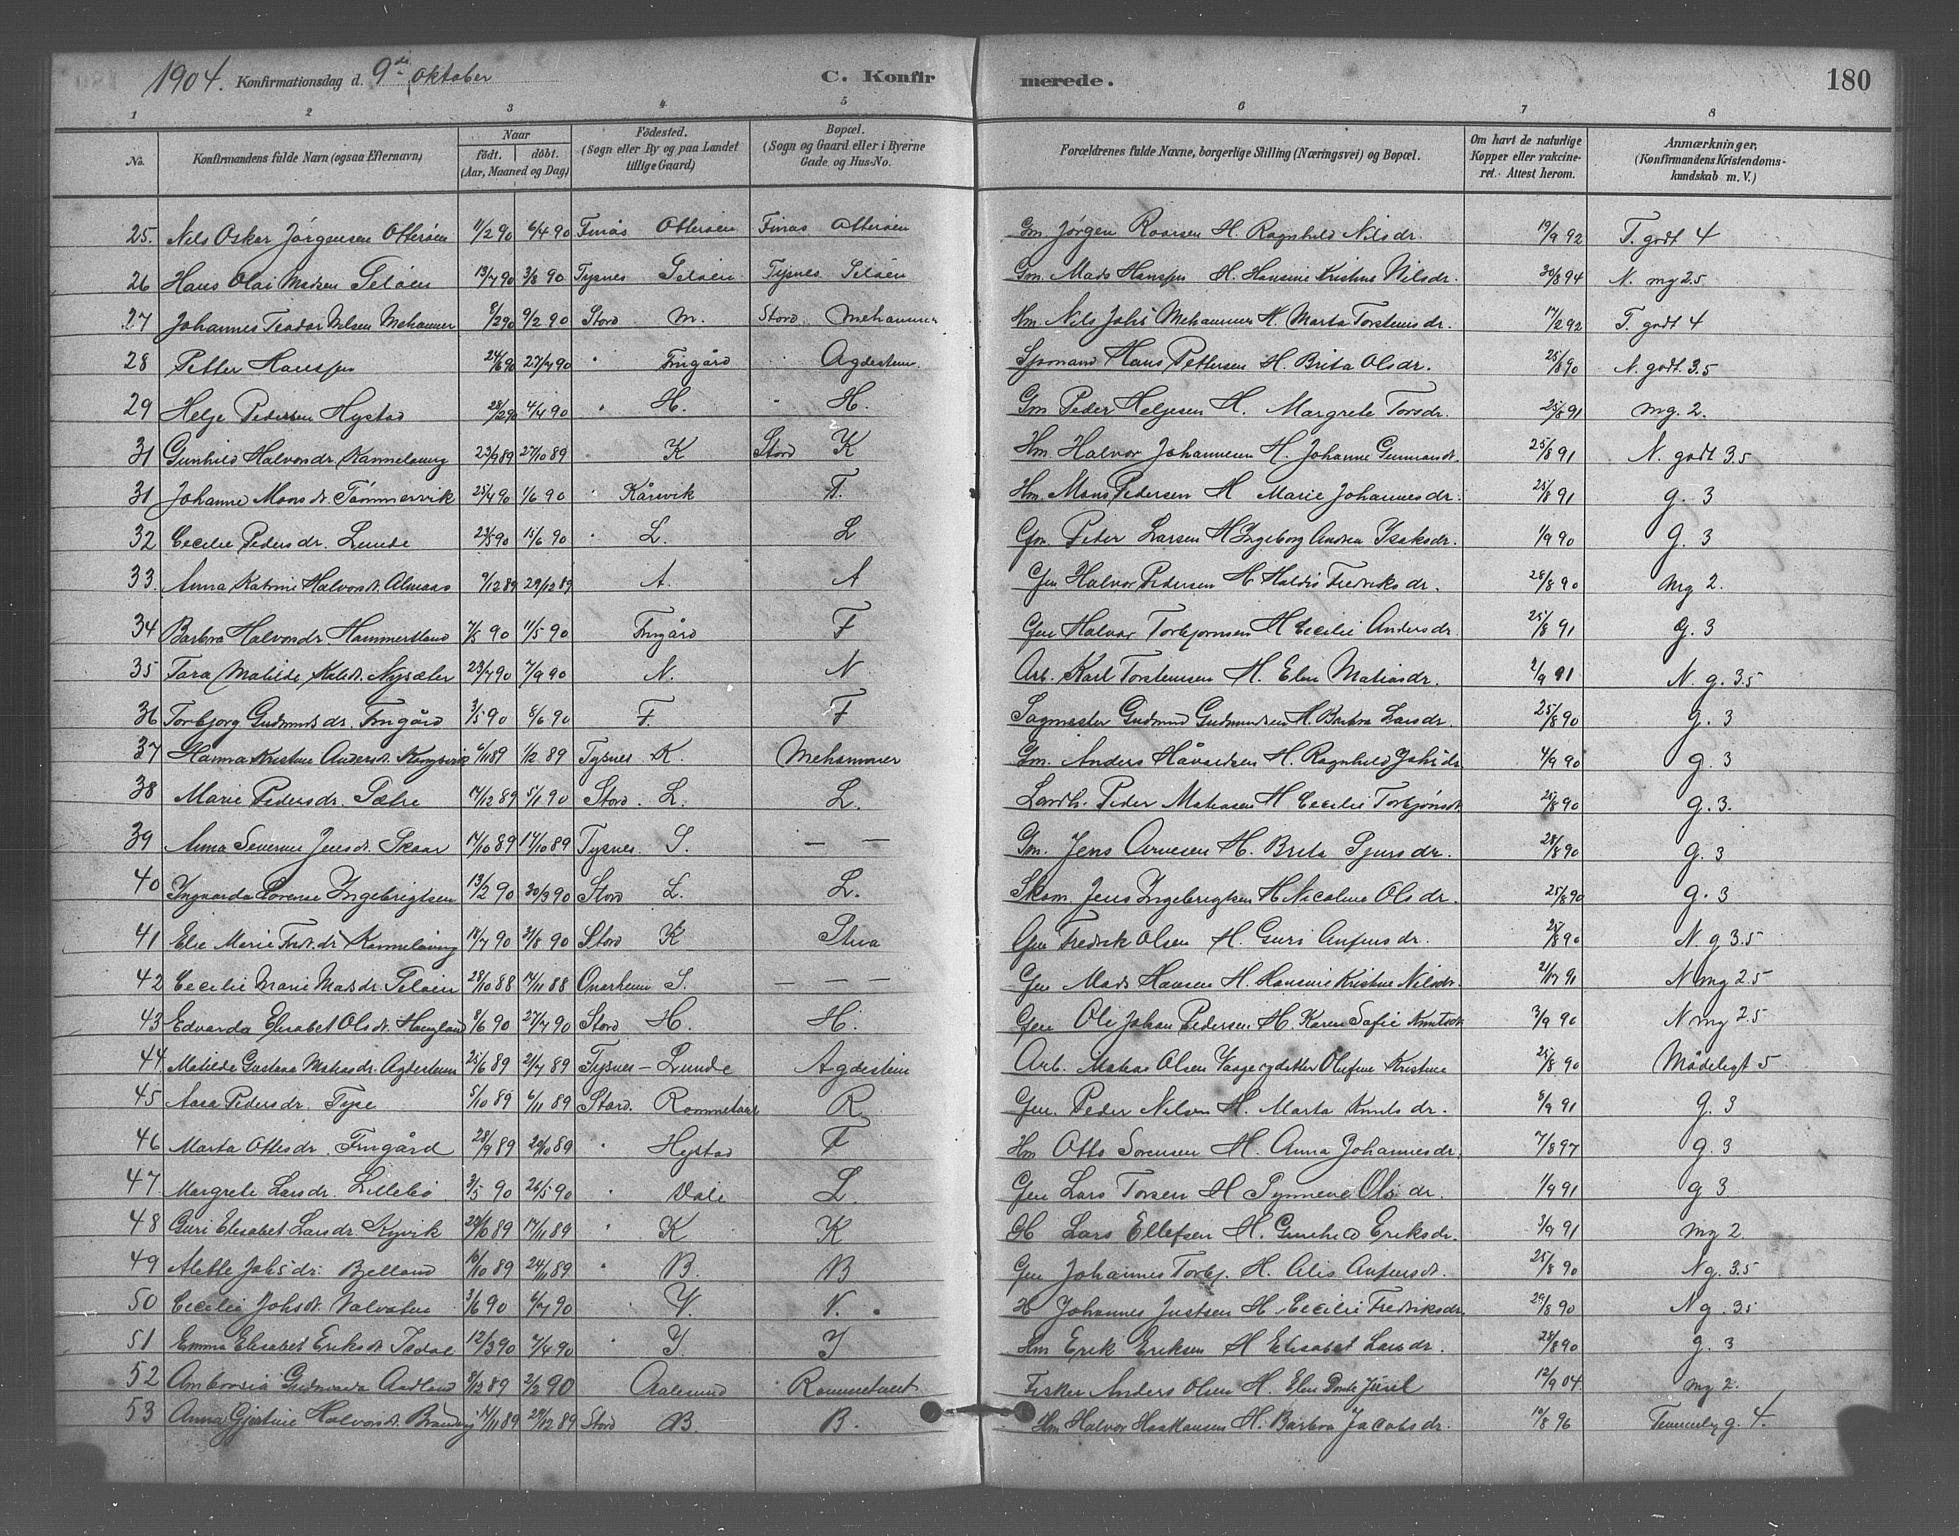 1904. Konfirmationsdag d. 9de oktober C. Konfir merede. 180
1 2 3 4 5 6 7 8
No. Konfirmandens fulde Navn (ogsaa Efternavn) Naar født. døbt. (Aar, Maaned og Dag) Fødested. (Sogn eller By og paa Landet tillige Gaard) Bopæl. (Sogn og Gaard eller i Byerne Gade og Hus-No. Forældrenes fulde Navne, borgerlige Stilling (Næringsvei) og Bopæl. Om havt de naturlige Kopper eller vakcineret. Attest herom. Anmærkninger. (Konfirmandens Kristendomskundskab m. V.)
25. Nils Oskar Jørgensen Otterøen 11/2 90 6/4 90 Finås Otterøen Finås Otterøen Gm Jørgen Roarsen H. Ragnhild Nilsdr. 19/9 92 T. godt 4
26 Hans Olai Madsen Seløen 13/7 90 3/8 90 Tysnes Seløen Tysnes Seløen Gm. Mads Hanssen H. Hansine Kristine Nilsdr. 30/8 94 N. mg 2.5
27 Johannes Teodor Nilsen Mehammer 9/2 90 Stord M. Stord Mehammer Hm. Nils Johs Mehammer H. Marta Torstensdr. 17/2 92 T. godt 4
28 Petter Hanssen 24/6 90 27/7 90 " Frugård " Agdestein Hans Pettersen H. Brita Olsdr. 25/8 90 N. godt 3.5
29 Helje Pedersen Hystad 28/2 90 4/4 90 " H. " H. Gm Peder Heljesen H. Margrete Torsdr. 25/8 91 mg. 2.
31 Gunhild Halvorsdr. Kannelønning 23/9 89 27/10 89 K Stord K Hm. Halvor Johannesen H. Johanne 25/8 91 N. godt 3.5
31 Johanne Monsdt. Tømmervik 25/4 90 1/6 90 " Kårevik T. Hm. Mons Pedersen H Marie Johannesdr. 25/8 91 g. 3
32 Cecilie Pedersdr. Lunde 23/5 90 15/6 90 " L. L Gm. Peter Larsen H Ingeborg Andrea Isaksdr. 1/9 90 g. 3
33. Anna Katrine Halvorsdt. Almaas 9/12 89 29/12 89 A. A Gm Halvor Pedersen H. Haldis Fredriksdr. 28/8 90 mg 2.
34 Barbra Halvorsdr. Hammersland 7/5 90 11/5 90 Frugård F Gm Halvor Torbjørnsen H Cecilie Andersdr. 25/8 91 g. 3
35 Tora Matilde Nysæter 23/7 90 7/9 90 N. N Arb. Karl Torstensen H. Elen Matiasdr. 2/9 91 N. g. 3.5
36 Torbjørg Gudmundsdr. Frugård 3/5 90 8/6 90 F. F Sagmester Gudmund Gudmundsen H. Barbra Larsdr. 25/8 90 g. 3
37 Hanna Kristine Andersdt. Kongsvik 6/11 89 1/12 89 Tysnes K. Mehammer Gm. Anders Håvardsen H. Ragnhild Johsdr 4/9 90 g. 3
38 Marie Pedersdr. Sætre 14/12 89 5/1 90 Stord. L. L. Landh. Peder Matiasen H Cecilie 25/8 90 g. 3.
39 Anna Severine Jensdt. Skaar 14/10 89 17/10 89 Tysnes S. — — Gm. Jens Arnesen H. Brita Sjursdr. 28/8 90 g. 3
40 Lorense Ingebrigtsen 13/2 90 30/3 90 Stord L. L. Skom. Jens Ingebrigtsen H Nicoline Olsdr. 25/8 90 g. 3
41 Elie Marie Kannelønning 18/7 90 31/8 90 Stord K Gm Fredrik Olsen H. Guri Anfinsdr. 28/8 90 N. g 3.5
42 Cecilie Marie Madsdr. Seløen 28/10 88 14/11 88 Onarheim S. — — — Gm Mads Hansen H. Hansine Kristine Nilsdr. N mg 2.5
43 Edvarda Elisabet Olsdt. Haugland 8/6 90 27/7 90 Stord H. H. Gm Ole Johan Pedersen H. Karen Sofie 3/9 90 N mg 2.5
44 Matilde Gustava Matiasdr. Agdestein 25/6 89 21/7 89 Tysnes — Lunde Agdestein Arb. Matias Olsen Olufine Kristine 25/8 90 Mådeligt 5
45 Aasa Pedersdr. Tyse 5/10 89 6/11 89 Stord. Rommetveit R. Gm. Peder Nilsen H. Marta Knutsdr. 8/9 91 g. 3
46 Marta Ottesdr. Frugård 28/9 89 20/10 89 " Hystad F Hm Otto Sørensen H. Anna Johannesdr. 7/8 97 g. 3
47 Margrete Larsdr. Lillebø 3/5 90 26/5 90 " Vale L. Gm Lars Torsen H Synneve Olsdr. 1/9 91 g 3
48 Guri Elisabet Larsdr. Kyvik 17/11 89 " K K H Lars Ellefsen H. Gunhild Eriksdr. 3/9 91 mg 2
49 Alette Johsdr. Bjelland 10/10 89 24/11 89 " B. B Gm Johannes Torbj. H. Alis 25/8 90 N g. 3.5
50 Cecilie Johsdt. Valvatne 3/6 90 6/7 90 V. V. H Johannes Justsen H. Cecilie Fredriksdr 29/8 90 N g. 3.5
51 Emma Elisabet Eriksdt. Isdal 12/3 90 7/4 90 " I. I Hm Erik Eriksen H Elisabet Larsdr. 28/8 90 g. 3
52 Ambrosia Aadland 8/12 89 2/2 90 Aalesund Rommetveit Fisker Anders Olsen H. Elen 12/9 04. mg 2.
53 Anna Gjertine Halvorsdt. 14/11 89 29/12 89 Stord B. B. Hm Halvor Haakansen H. Barbra Jacobsdr. 10/8 96 Temmelig g. 4.